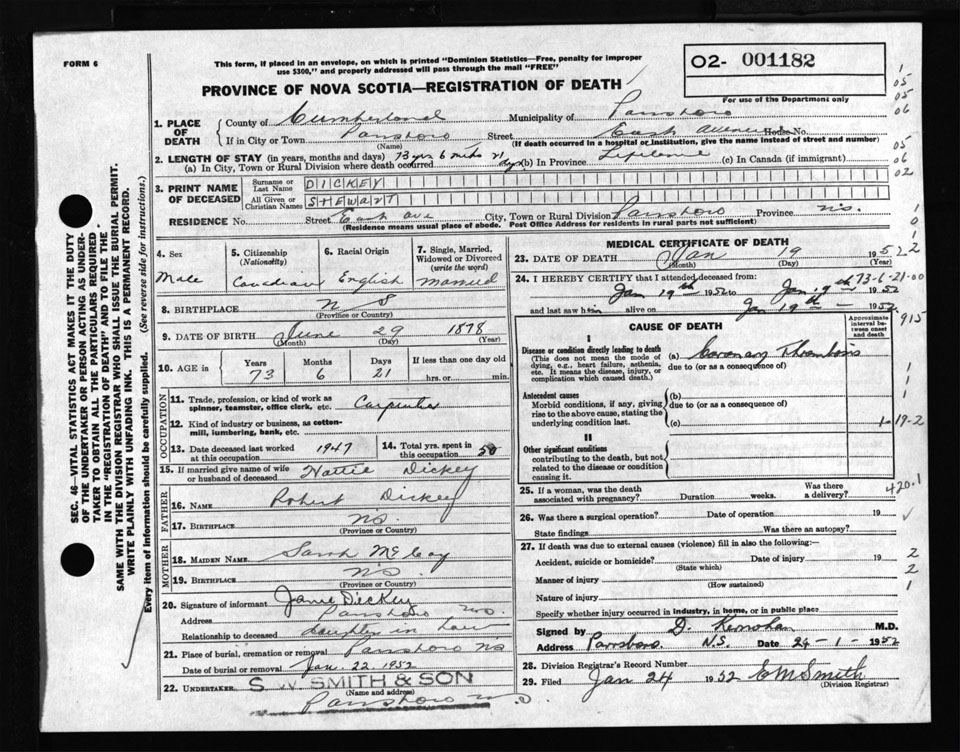 FORM 6
This form, if placed in an envelope, on which is printed "Dominion Statistics—Free, penalty for improper
use $300," and properly addressed will pass through the mail "FREE"
O2- 001182
For use of the Department only
PROVINCE OF NOVA SCOTIA—REGISTRATION OF DEATH
1. PLACE OF DEATH
County of Cumberland Municipality of Parrsboro
If in City or Town Parrsboro Street East Avenue House No.
(Name) (If death occurred in a hospital or institution, give the name instead of street and number)
2. LENGTH OF STAY (in years, months and days) 73 yrs 6 mths 21 days
(a) In City, Town or Rural Division where death occurred (b) In Province Lifetime (c) In Canada (if immigrant)
3. PRINT NAME OF DECEASED
Surname or Last Name DICKEY
All Given or Christian Names STEWART
RESIDENCE No. Street East Ave City, Town or Rural Division Parrsboro Province N.S.
(Residence means usual place of abode. Post Office Address for residents in rural parts not sufficient)
4. Sex Male
5. Citizenship (Nationality) Canadian
6. Racial Origin English
7. Single, Married, Widowed or Divorced (write the word) Married
8. BIRTHPLACE N S
(Province or Country)
9. DATE OF BIRTH June 29 1878
(Month) (Day) (Year)
10. AGE in Years 73 Months 6 Days 21 If less than one day old hrs. or min.
OCCUPATION
11. Trade, profession, or kind of work as spinner, teamster, office clerk, etc. Carpenter
12. Kind of industry or business, as cotton-mill, lumbering, bank, etc.
13. Date deceased last worked at this occupation 1947
14. Total yrs. spent in this occupation 50
15. If married give name of wife or husband of deceased Hattie Dickey
FATHER
16. NAME Robert Dickey
17. BIRTHPLACE N.S.
(Province or Country)
MOTHER
18. MAIDEN NAME Sarah McCoy
19. BIRTHPLACE N.S.
(Province or Country)
20. Signature of informant Janie Dickey
Address Parrsboro N.S.
Relationship to deceased daughter in law
21. Place of burial, cremation or removal Parrsboro N.S.
Date of burial or removal Jan. 22. 1952
22. UNDERTAKER S. W. SMITH & SON
(Name and address)
Parrsboro N.S.
MEDICAL CERTIFICATE OF DEATH
23. DATE OF DEATH Jan 19 1952
(Month) (Day) (Year)
24. I HEREBY CERTIFY that I attended deceased from
Jan 19th 1952 to Jan 19th 1952
and last saw him alive on Jan 19th 1952
73-6-21-00
CAUSE OF DEATH
Approximate interval between onset and death
I
Disease or condition directly leading to death (a) Coronary Thrombosis
(This does not mean the mode of dying, e.g., heart failure, asthenia, etc. It means the disease, injury, or complication which caused death.)
due to (or as a consequence of)
Antecedent causes (b)
Morbid conditions, if any, giving rise to the above cause, stating the underlying condition last.
due to (or as a consequence of)
(c)
II
Other significant conditions
contributing to the death, but not related to the disease or condition causing it.
25. If a woman, was the death associated with pregnancy? Duration weeks. Was there a delivery?
26. Was there a surgical operation? Date of operation 19
State findings Was there an autopsy?
27. If death was due to external causes (violence) fill in also the following:—
Accident, suicide or homicide? Date of injury 19
(State which)
Manner of injury
(How sustained)
Nature of injury
Specify whether injury occurred in industry, in home, or in public place
Signed by D. Kernohan M.D.
Address Parrsboro N.S. Date 24-1-1952
28. Division Registrar's Record Number
29. Filed Jan 24 1952 E M Smith
(Division Registrar)
1
05
05
06
05
06
02
915
420.1
SEC. 46—VITAL STATISTICS ACT MAKES IT THE DUTY
OF THE UNDERTAKER OR PERSON ACTING AS UNDER-
TAKER TO OBTAIN ALL THE PARTICULARS REQUIRED
IN THE "REGISTRATION OF DEATH" AND TO FILE THE
SAME WITH THE DIVISION REGISTRAR WHO SHALL ISSUE THE BURIAL PERMIT.
WRITE PLAINLY WITH UNFADING INK. THIS IS A PERMANENT RECORD.
Every item of Information should be carefully supplied. (See reverse side for instructions.)